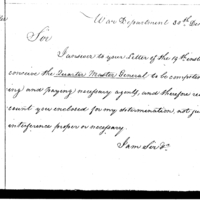 War Department 30th Dec
Sir
I answer to your Letter of the 19th inst
conceive the Quarter Master General to be competent
ing and paying necessary agents, and therefore re
count you enclosed for my determination, not ju
interference proper or necessary.
I am Sir &c.